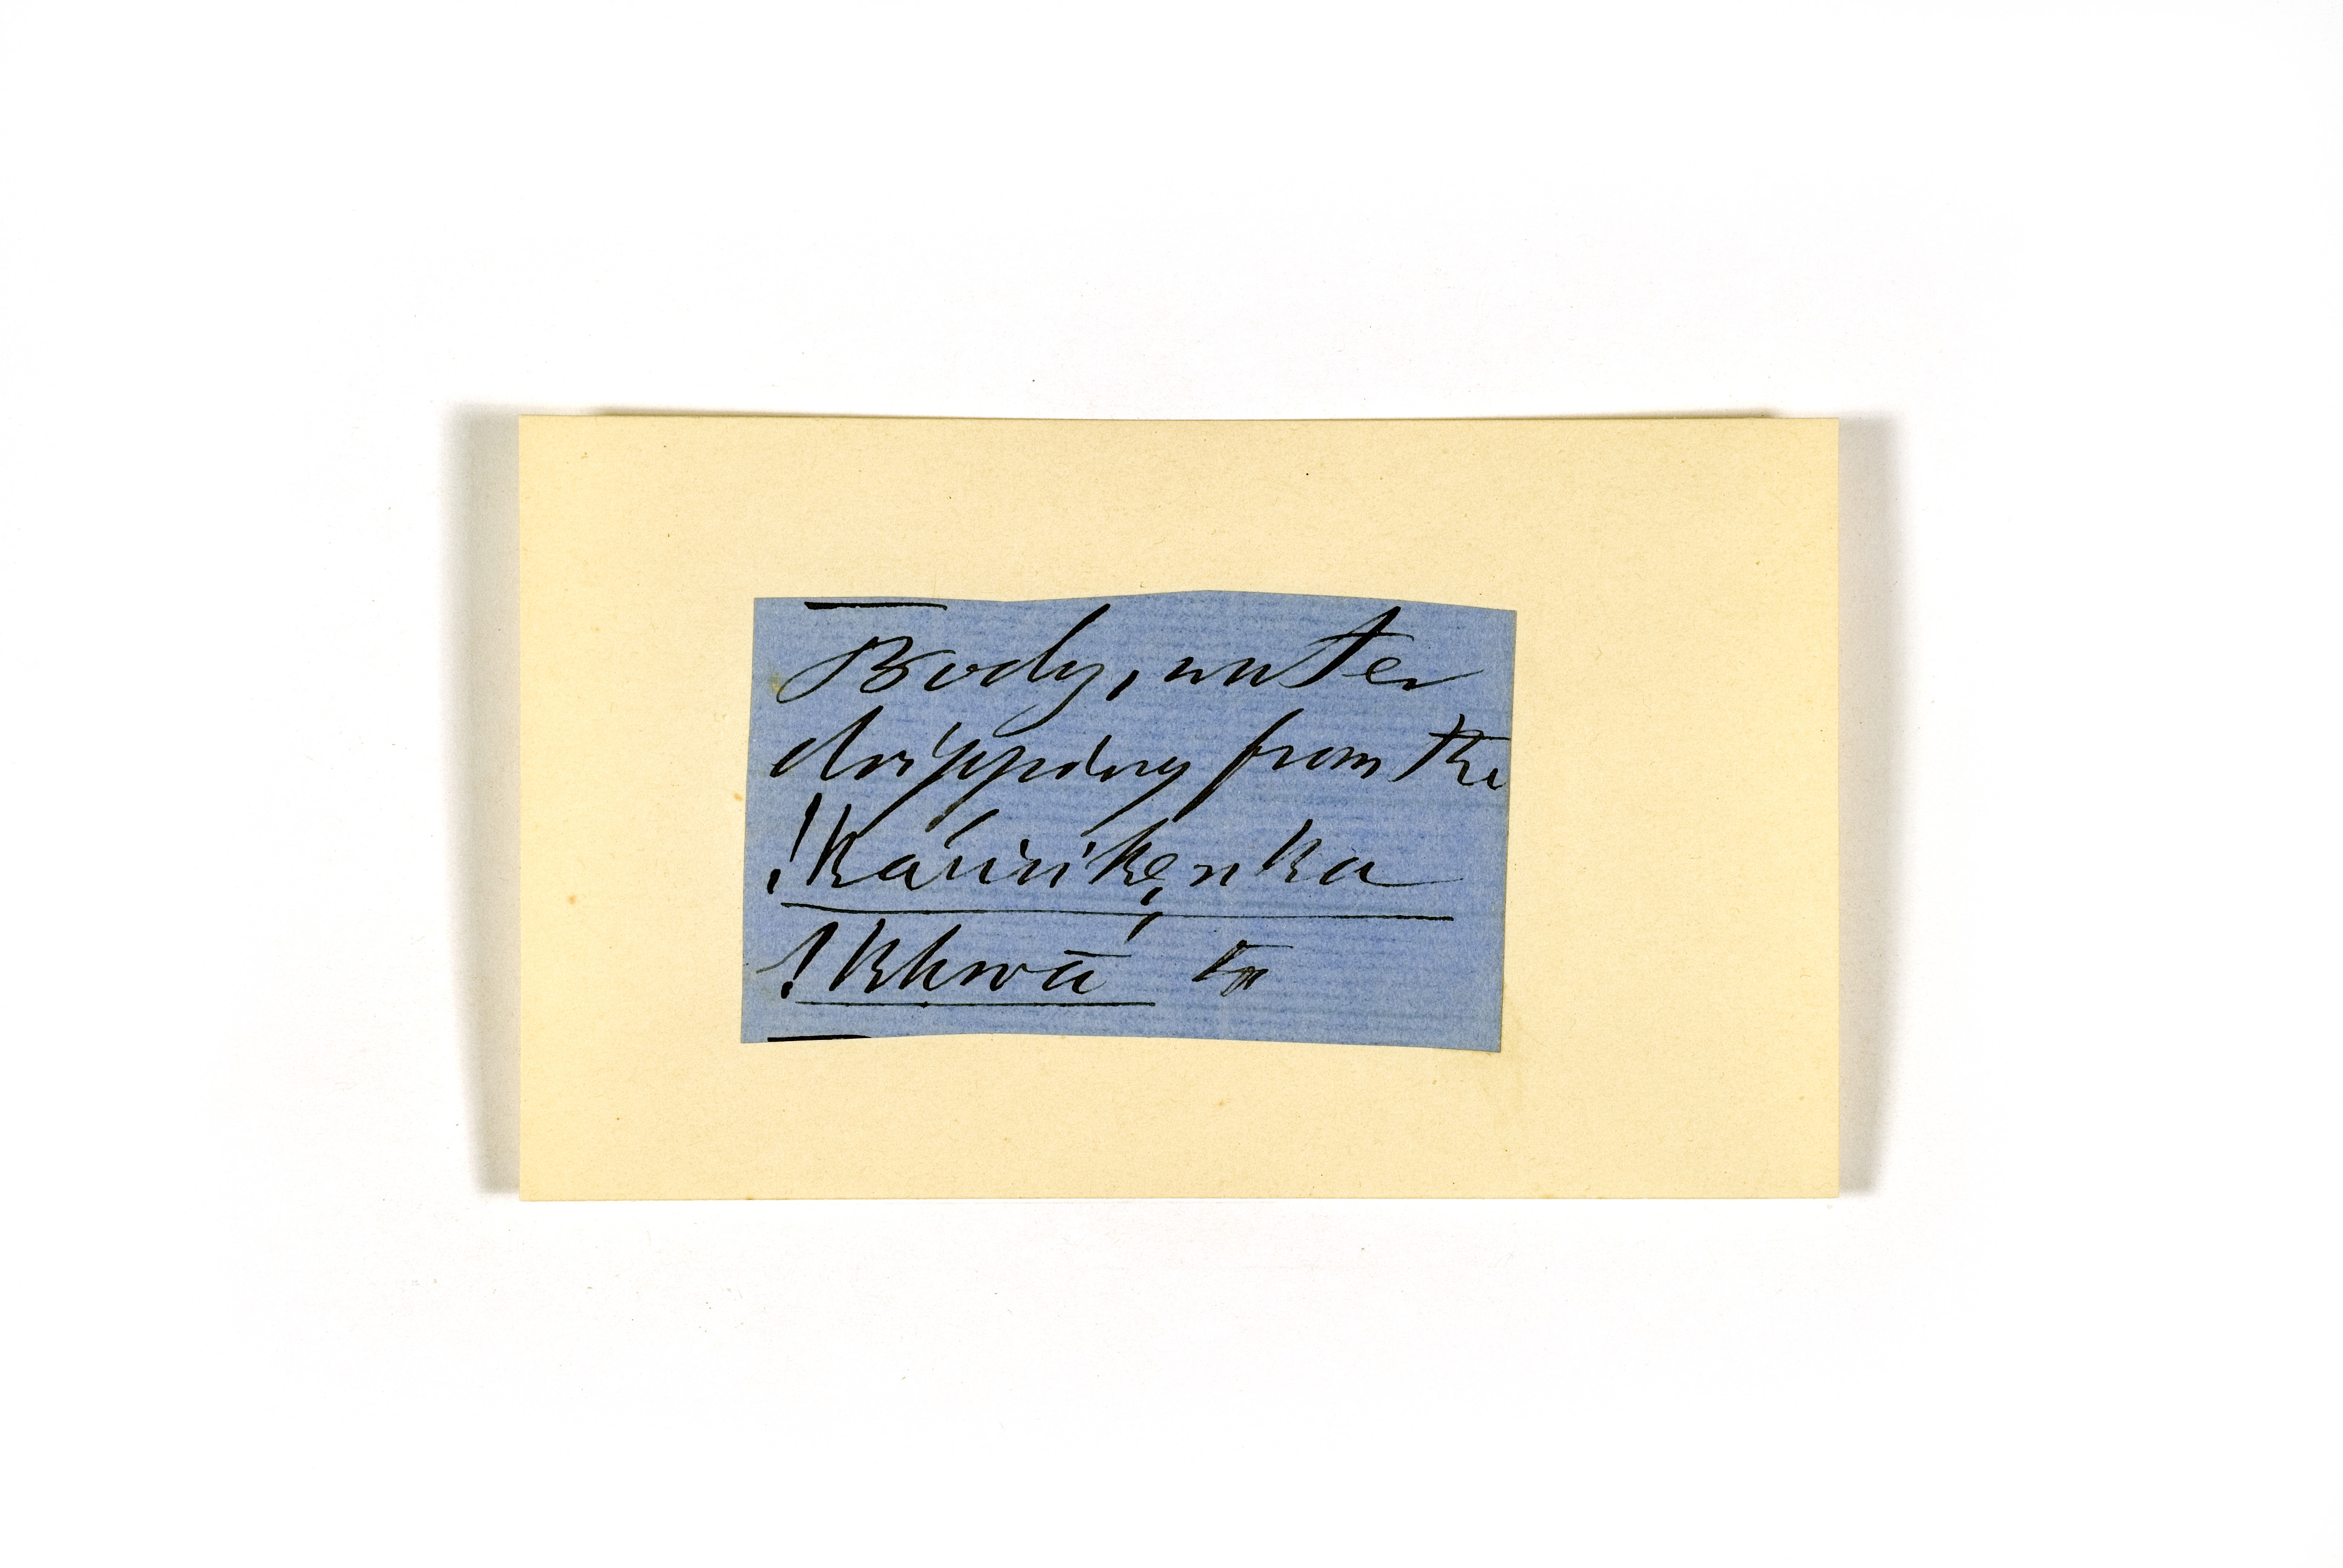 Body, water
dripping from the
!kauirikenka
!khwā